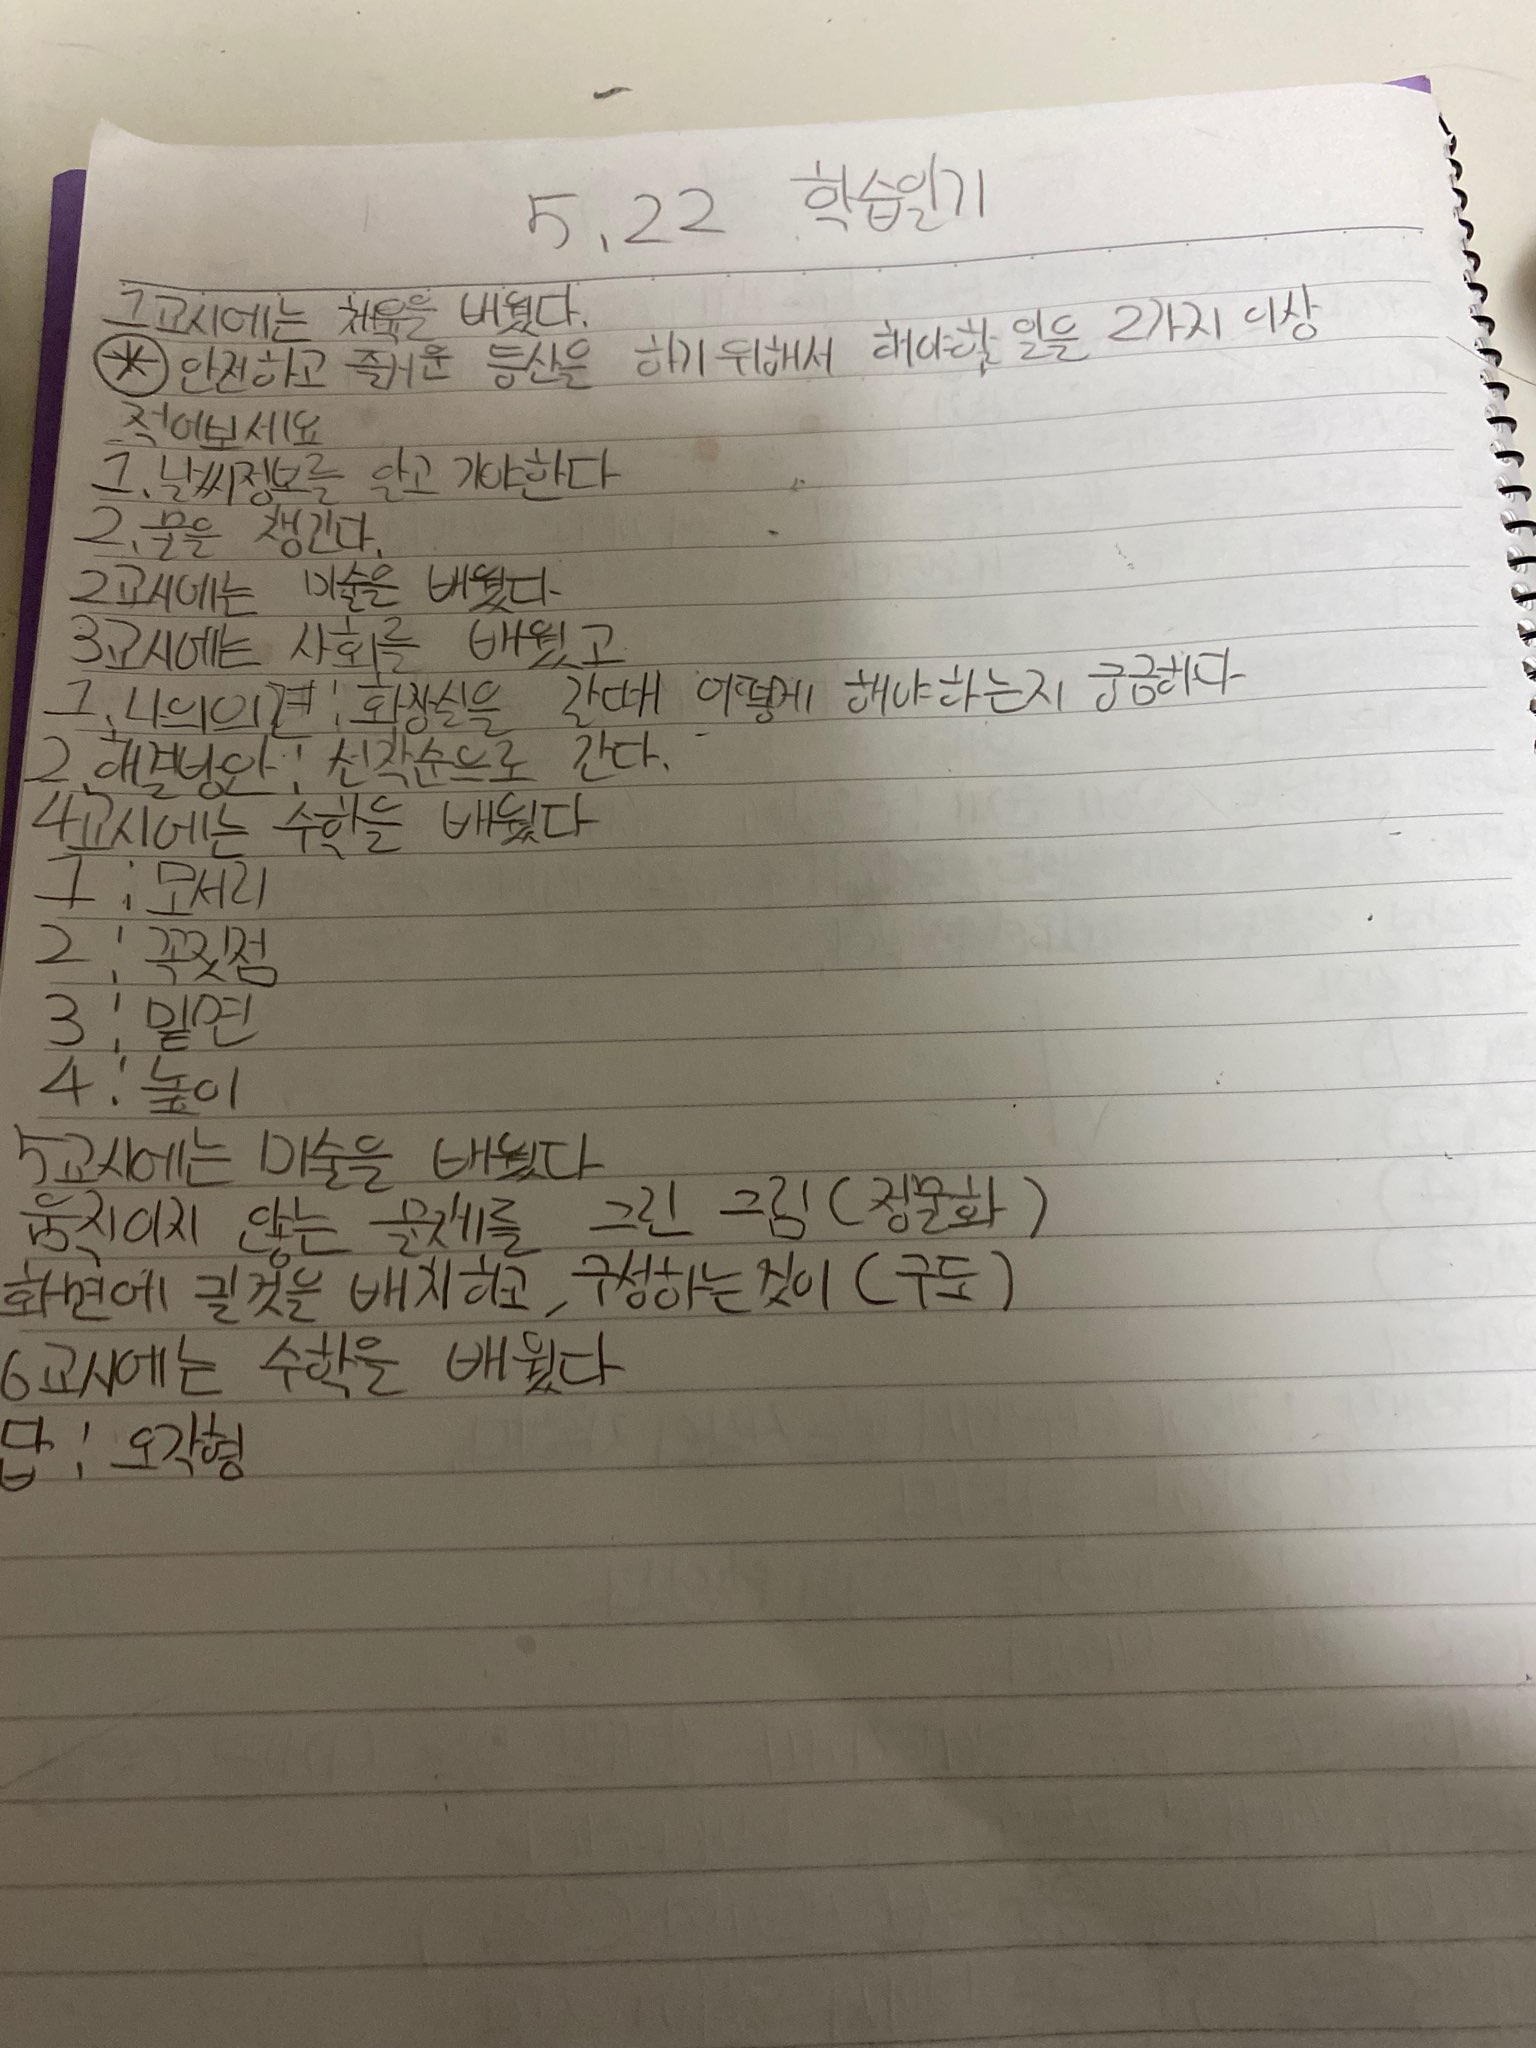 5.22 학습일기
1교시에는 체육을 배웠다.
* 안전하고 즐거운 등산을 하기위해서 해야할 일을 2가지 이상
적어보세요
1. 날씨정보를 알고 가야한다
2. 물을 챙긴다.
2교시에는 미술을 배웠다
3교시에는 사회를 배웠고
1. 나의의견: 화장실을 갈때 어떻게 해야하는지 궁금하다
2. 해결방안: 선착순으로 간다.
4교시에는 수학을 배웠다
1: 모서리
2: 꼭짓점
3: 밑면
4: 높이
5교시에는 미술을 배웠다
움직이지 않는 물체를 그린 그림(정물화)
화면에 그릴것을 배치하고, 구성하는것이 (구도)
6교시에는 수학을 배웠다
답: 오각형